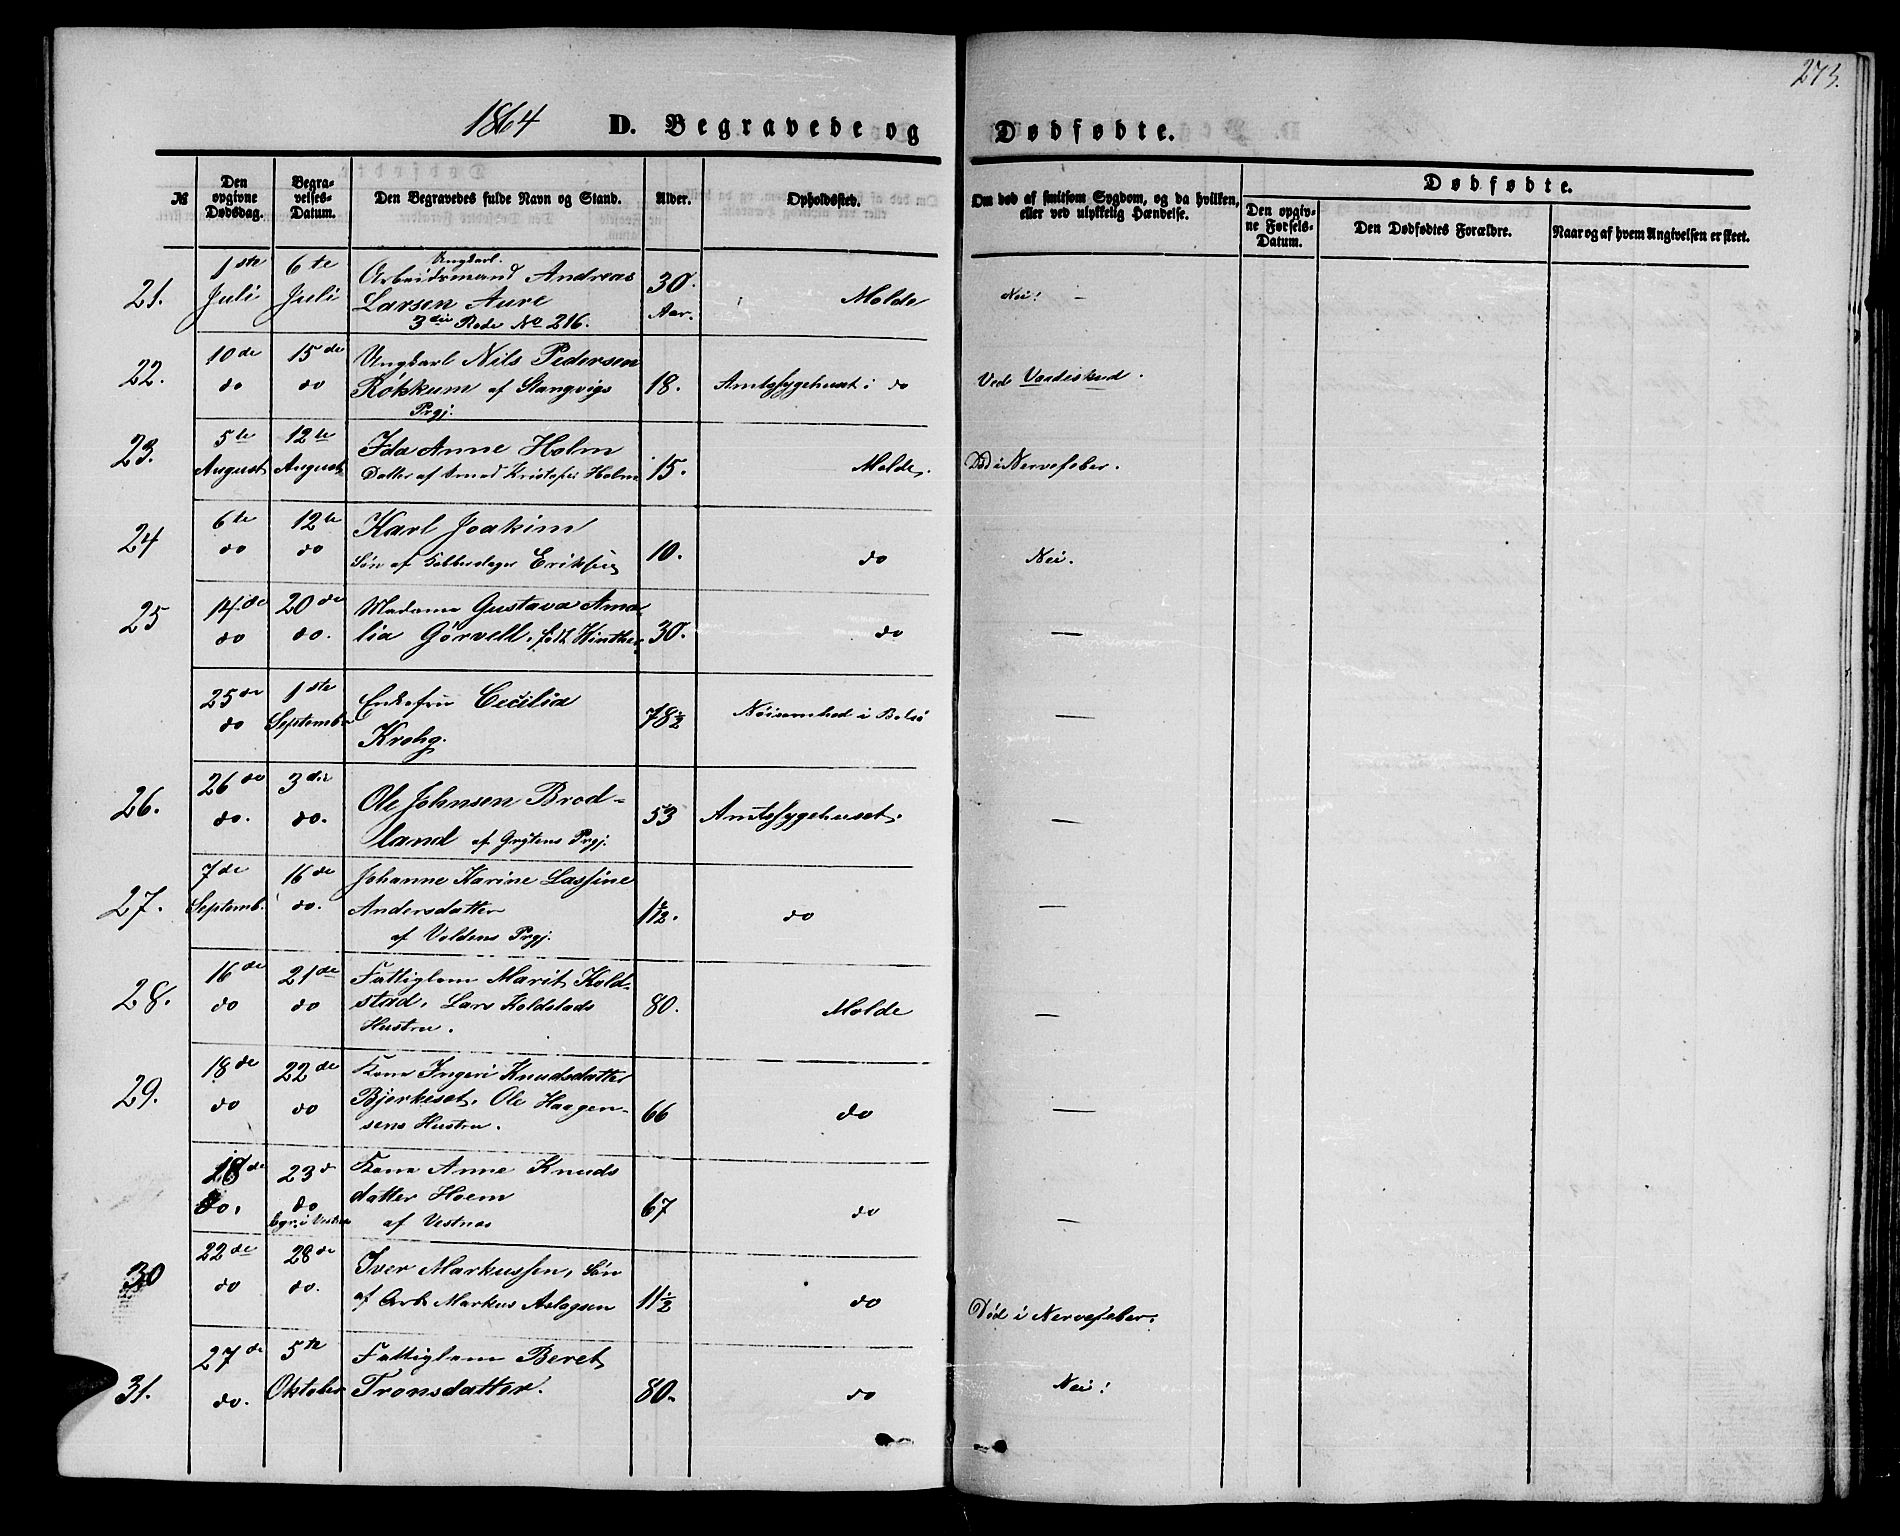 273.
1864 D. Begravede og Dødfødte.
№
Den opgivne Dødsdag.
Begravelses-Datum.
Den Begravedes fulde Navn og Stand.
Alder.
Opholdssted.
Om død af smitsom Sygdom, og da hvilken, eller ved ulykkelig Hændelse.
Dødfødte.
Den opgivne Førsels-Datum.
Den Dødfødtes Forældre.
Naar og af hvem Angivelsen er skeet.
21. 1ste Juli 6te Juli
Ungkarl.
Arbeidsmand Andreas
Larsen Aure
3die Rode No 216.
30. Aar. Molde Nei!
22. 10de do 15de do
Ungkarl Nils Pedersen
Røkkum af Stangvigs
Prgj.
18. Amtssygehuset i do Ved Vaadeskud.
23. 5te August 12te August
Ida Anne Holm
Datter af Smed Kristofer Holm
15. Molde. Død i Nervefeber.
24 6te do 12te do
Karl Joakim
Søn af Kobberslager Eriksen
10. do Nei.
25 14de do 20de do.
Madame Gustava Ama-
lia Gørvell, født Winther
30. do —
25de do 1ste September
Enkefru Cecilia
Krohg.
78½ Nøisomhed i Bolsø —
26. 26de do. 3die do.
Ole Johnsen Brod-
land af Grytens Prgj.
53 Amtssygehuset. —
27. 7de Septemb. 16de do.
Johanne Karine Lassine
Andersdatter
af Voldens Prgj.
do —
28. 16de do 21de do
Fattiglem Marit Kold-
stad, Lars Koldstads
Hustru.
80. Molde —
29. 18de do 22de do
Kone Ingeri Knudsdatter
Bjerkeset, Ole Haagen-
sens Hustru.
66 do —
18de do. 23d do
Kone Anne Knuds
datter Hoem
af Vestnæs
67 do —
30 22de do 28de do.
Iver Markussen, Søn
af Arb. Markus Aslagsen
11½ do Død i Nervefeber.
31. 27de do. 5te Oktober
Fattiglem Beret
Tronsdatter.
80. do Nei!